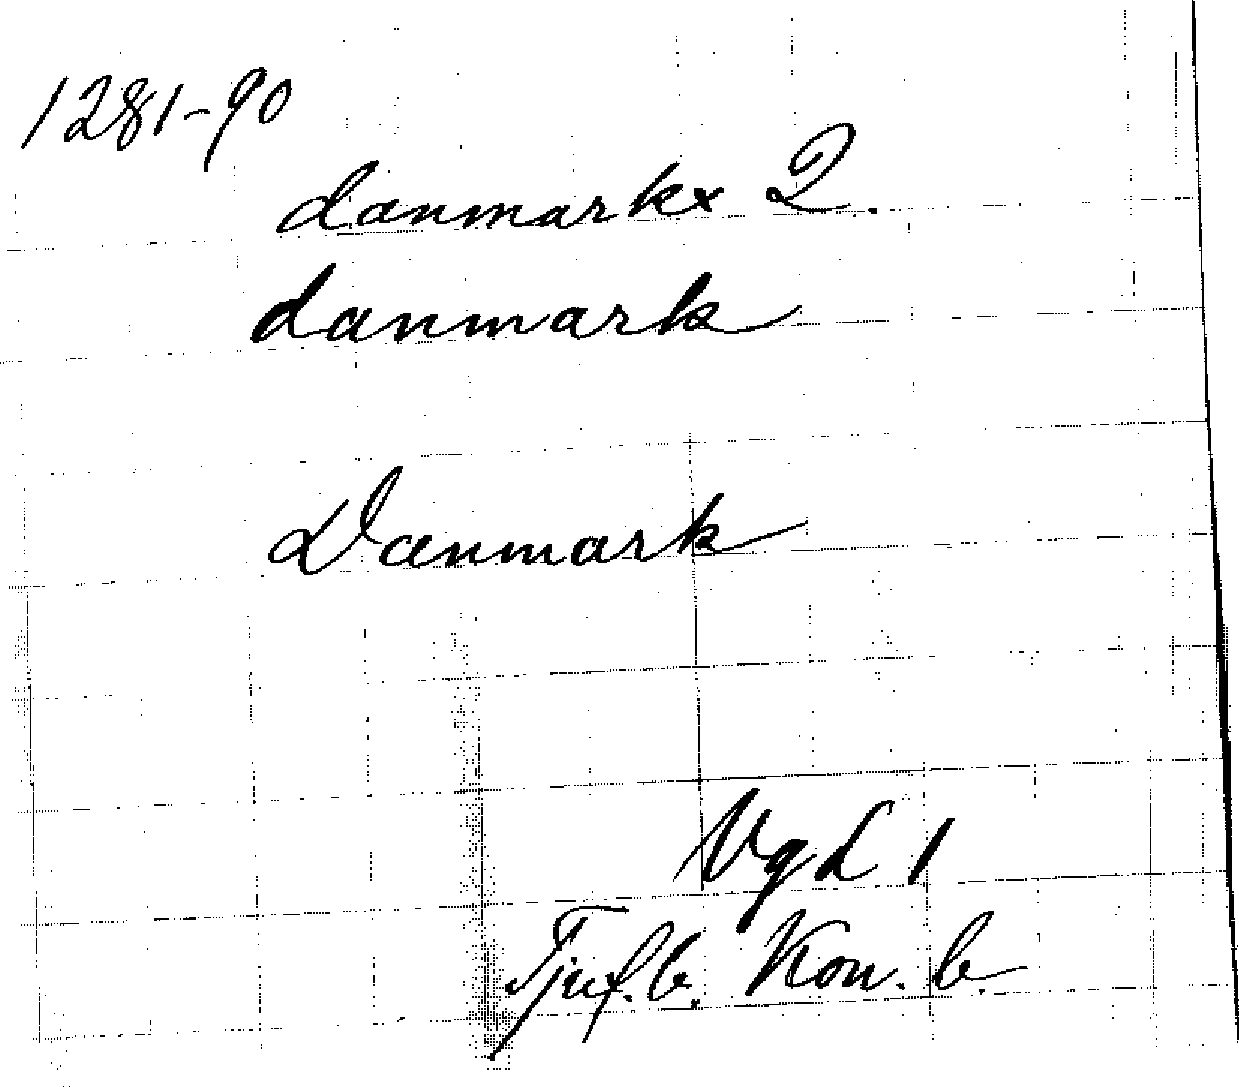 1281-90
danmarkx 2.
danmark
Danmark
VgL 1
Tjuf.b. Kon. b.